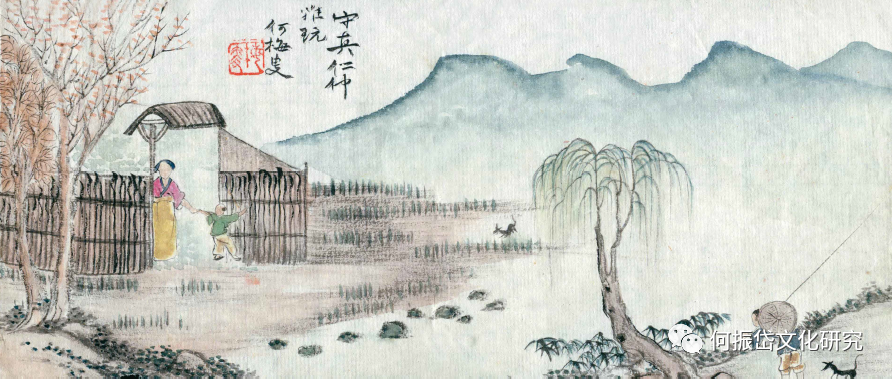 守英仁仲
雅玩
何梅叟
何振岱文化研究